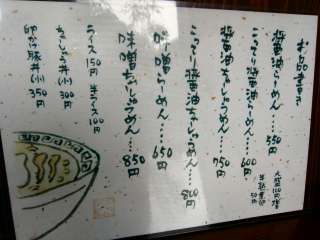 お品書き
醤油らーめん…550円
こってり醤油らーめん…600円
醤油ちゃしゅうめん…750円
こってり醤油ちゃしゅうめん…800円
味噌らーめん……650円
味噌ちゃしゅうめん…850円
大盛110円増
半熟煮卵50円
ライス150円 半ライス100円
ちゃしゅう丼(小)300円
卵かけ豚丼(小)350円